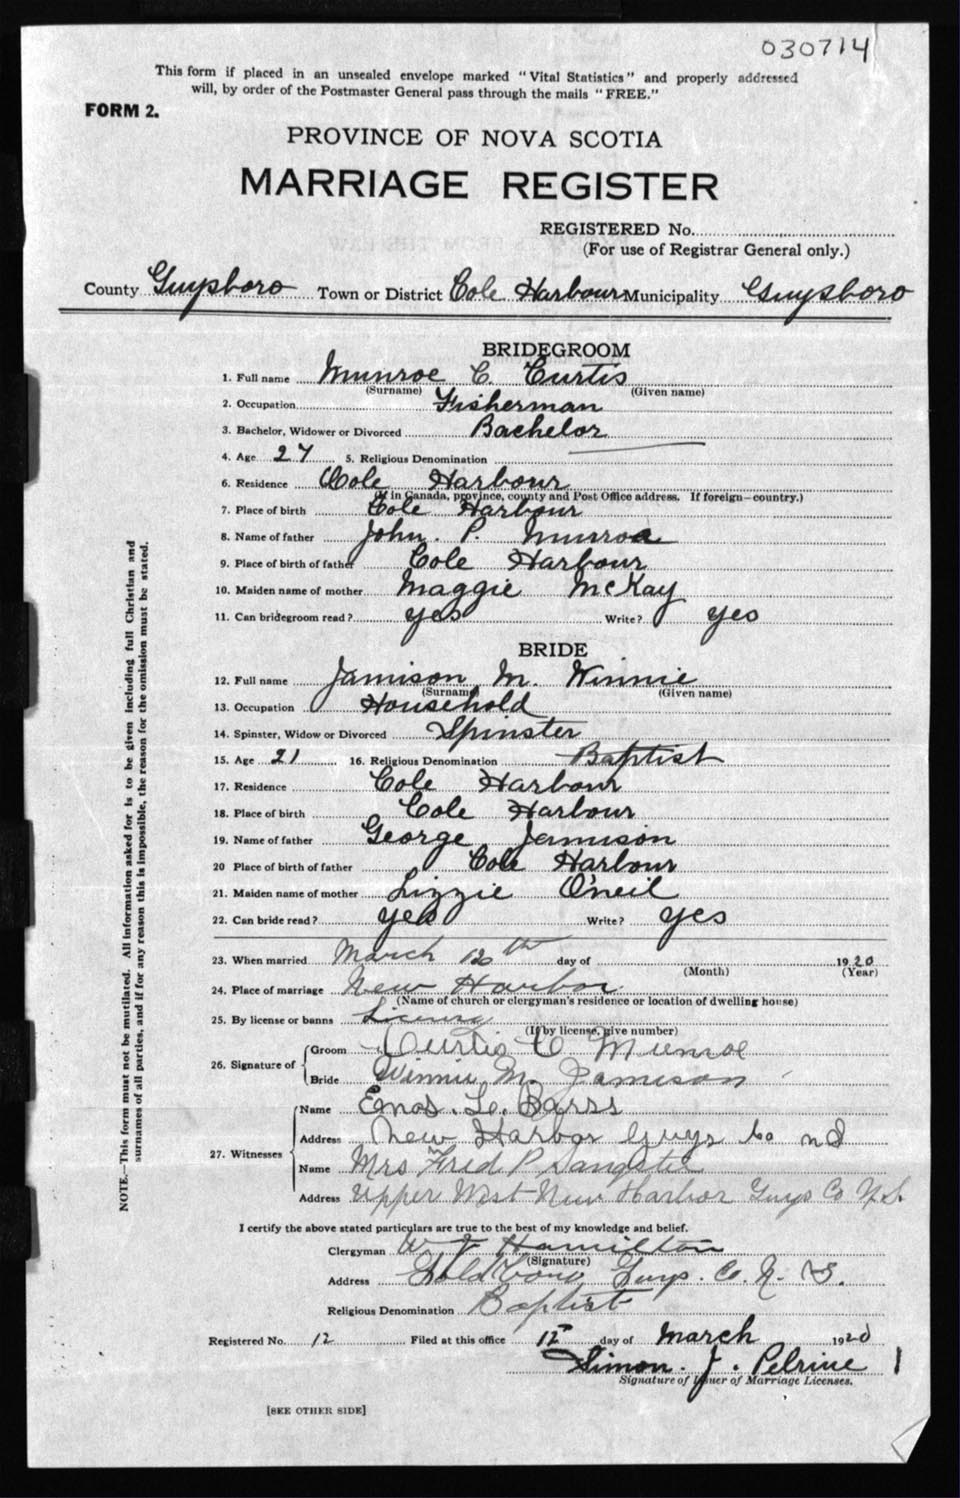 030714
This form if placed in an unsealed envelope marked "Vital Statistics" and properly addressed
will, by order of the Postmaster General pass through the mails "FREE."
FORM 2.
PROVINCE OF NOVA SCOTIA
MARRIAGE REGISTER
REGISTERED No.
(For use of Registrar General only.)
County Guysboro Town or District Cole Harbour Municipality Guysboro
BRIDEGROOM
1. Full name Munroe C. Curtis
(Surname) (Given name)
2. Occupation Fisherman
3. Bachelor, Widower or Divorced Bachelor
4. Age 27 5. Religious Denomination
6. Residence Cole Harbour
(If in Canada, province, county and Post Office address. If foreign—country.)
7. Place of birth Cole Harbour
8. Name of father John. P. Munroe
9. Place of birth of father Cole Harbour
10. Maiden name of mother Maggie McKay
11. Can bridegroom read? yes Write? yes
BRIDE
12. Full name Jamison M. Winnie
(Surname) (Given name)
13. Occupation Household
14. Spinster, Widow or Divorced Spinster
15. Age 21 16. Religious Denomination Baptist
17. Residence Cole Harbour
18. Place of birth Cole Harbour
19. Name of father George Jamison
20 Place of birth of father Cole Harbour
21. Maiden name of mother Lizzie O'neil
22. Can bride read? yes Write? yes
23. When married March 12th day of 1920
(Month) (Year)
24. Place of marriage New Harbor
(Name of church or clergyman's residence or location of dwelling house)
25. By license or banns License
(If by license, give number)
26. Signature of Groom Curtis C Munroe
Bride Winnie M. Jamison
27. Witnesses Name Enos. L. Barss
Address New Harbor Guys Co
Name Mrs Fred P Sangster
Address Upper West New Harbor Guys Co N.S.
I certify the above stated particulars are true to the best of my knowledge and belief.
Clergyman Hamilton
(Signature)
Address Goldboro Guys. Co. N. S.
Religious Denomination Baptist
Registered No. 12 Filed at this office 12 day of March 1920
Simon. J. Pelrine
Signature of Issuer of Marriage Licenses.
[SEE OTHER SIDE]
NOTE.—This form must not be mutilated. All information asked for is to be given including full Christian and
surnames of all parties, and if for any reason this is impossible, the reason for the omission must be stated.